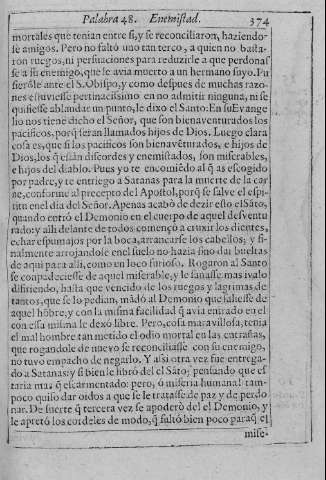 Palabra 48. Enemistad. 374
mortales que tenian entre si, y se reconciliaron, haziendo-
se amigos. Pero no faltò uno tan terco, a quien no basta-
ron ruegos, ni persuaciones para reduzirle a que perdonas
se a su enemigo, que le avia muerto a un hermano suyo. Pu
sierõle ante el S. Obispo, y como despues de muchas razo-
nes estuviesse pertinacissimo en no admitir ninguna, ni se
quisiesse ablandar un punto, le dixo el Santo: En su Evange
lio nos tiene dicho el Señor, que son bienaventurados los
pacificos, porq̃ seràn llamados hijos de Dios. Luego clara
cosa es, que si los pacificos son bienavẽturados, e hijos de
Dios, los q̃ estàn discordes y enemistados, son miserables,
e hijos del diablo. Pues yo te encomiẽdo al q̃ as escogido
por padre, y te entriego a Satanas para la muerte de la car
ne, conforme al precepto del Apostol, porq̃ se salve el espi-
ritu en el dia del Señor. Apenas acabò de dezir esto el Sãto,
quando entrò el Demonio en el cuerpo de aquel desventu
rado: y alli delante de todos començò a cruxir los dientes,
echar espumajos por la boca, arrancarse los cabellos; y fi-
nalmente arrojandose en el suelo no hazia sino dar bueltas
de aqui para alli, como un loco furioso. Rogaron al Santo
se compadeciesse de aquel miserable, y le sanasse mas ivalo
difiriendo, hasta que vencido de los ruegos y lagrimas de
tantos, que se lo pedian, mãdò al Demonio que saliesse de
aquel hõbre, y con la misma facilidad q̃ avia entrado en el
con essa misma le dexò libre. Pero, cosa maravillosa, tenia
el mal hombre tan metido el odio mortal en las entrañas,
que rogandole de nuevo se reconciliasse con su enemigo,
no tuvo empacho de negarlo. Y assi otra vez fue entrega-
do a Satanas; y si bien le librò del el Sãto; pensando que es
taria mas q̃ escarmentado: pero, ô miseria humana! tam-
poco quiso dar oidos a que se le tratasse de paz y de perdo
nar. De suerte q̃ tercera vez se apoderò del el Demonio, y
le apretò los cordeles de modo, q̃ faltò bien poco paraq̃ el
mise-